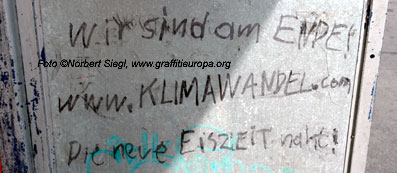 Wir sind am ENDE!
Foto ©Norbert Siegl, www.graffitieuropa.org
www.KLIMAWANDEL.com
Die neue EiSZEIT naht!